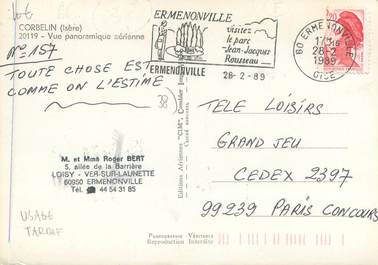 10€
CORBELIN (Isère)
20119 - Vue panoramique aérienne
N° 157
TOUTE CHOSE EST
COMME ON L'ESTIME
38
M. et Mme Roger BERT
5, allée de la Barrière
LOISY - VER-SUR-LAUNETTE
60950 ERMENONVILLE
Tél. 44 54 31 85
USAGE
TARDIF
ERMENONVILLE
visitez
le parc
Jean-Jacques
Rousseau
ERMENONVILLE
28-2-89
60 ERMENONVILLE
28-2
1989
OISE
2,20
Editions Aériennes "CIM"
TELE LOISIRS
GRAND JEU
CEDEX 2397
99239 PARIS CONCOURS
Reproduction Interdite